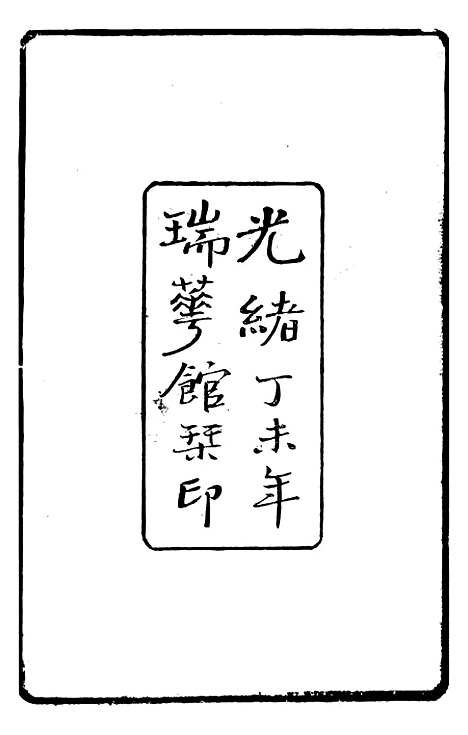 光緒丁未年
瑞蕚館栞印